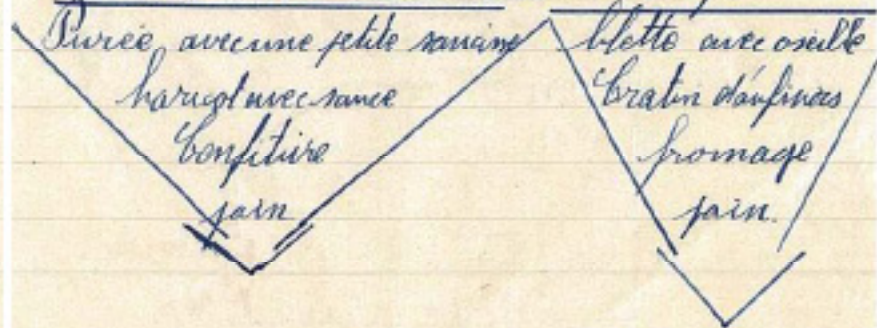 Purée avec une petite saucisse
haricot avec sauce
Confiture
pain
blette avec oseille
Gratin dáufinois
fromage
pain.